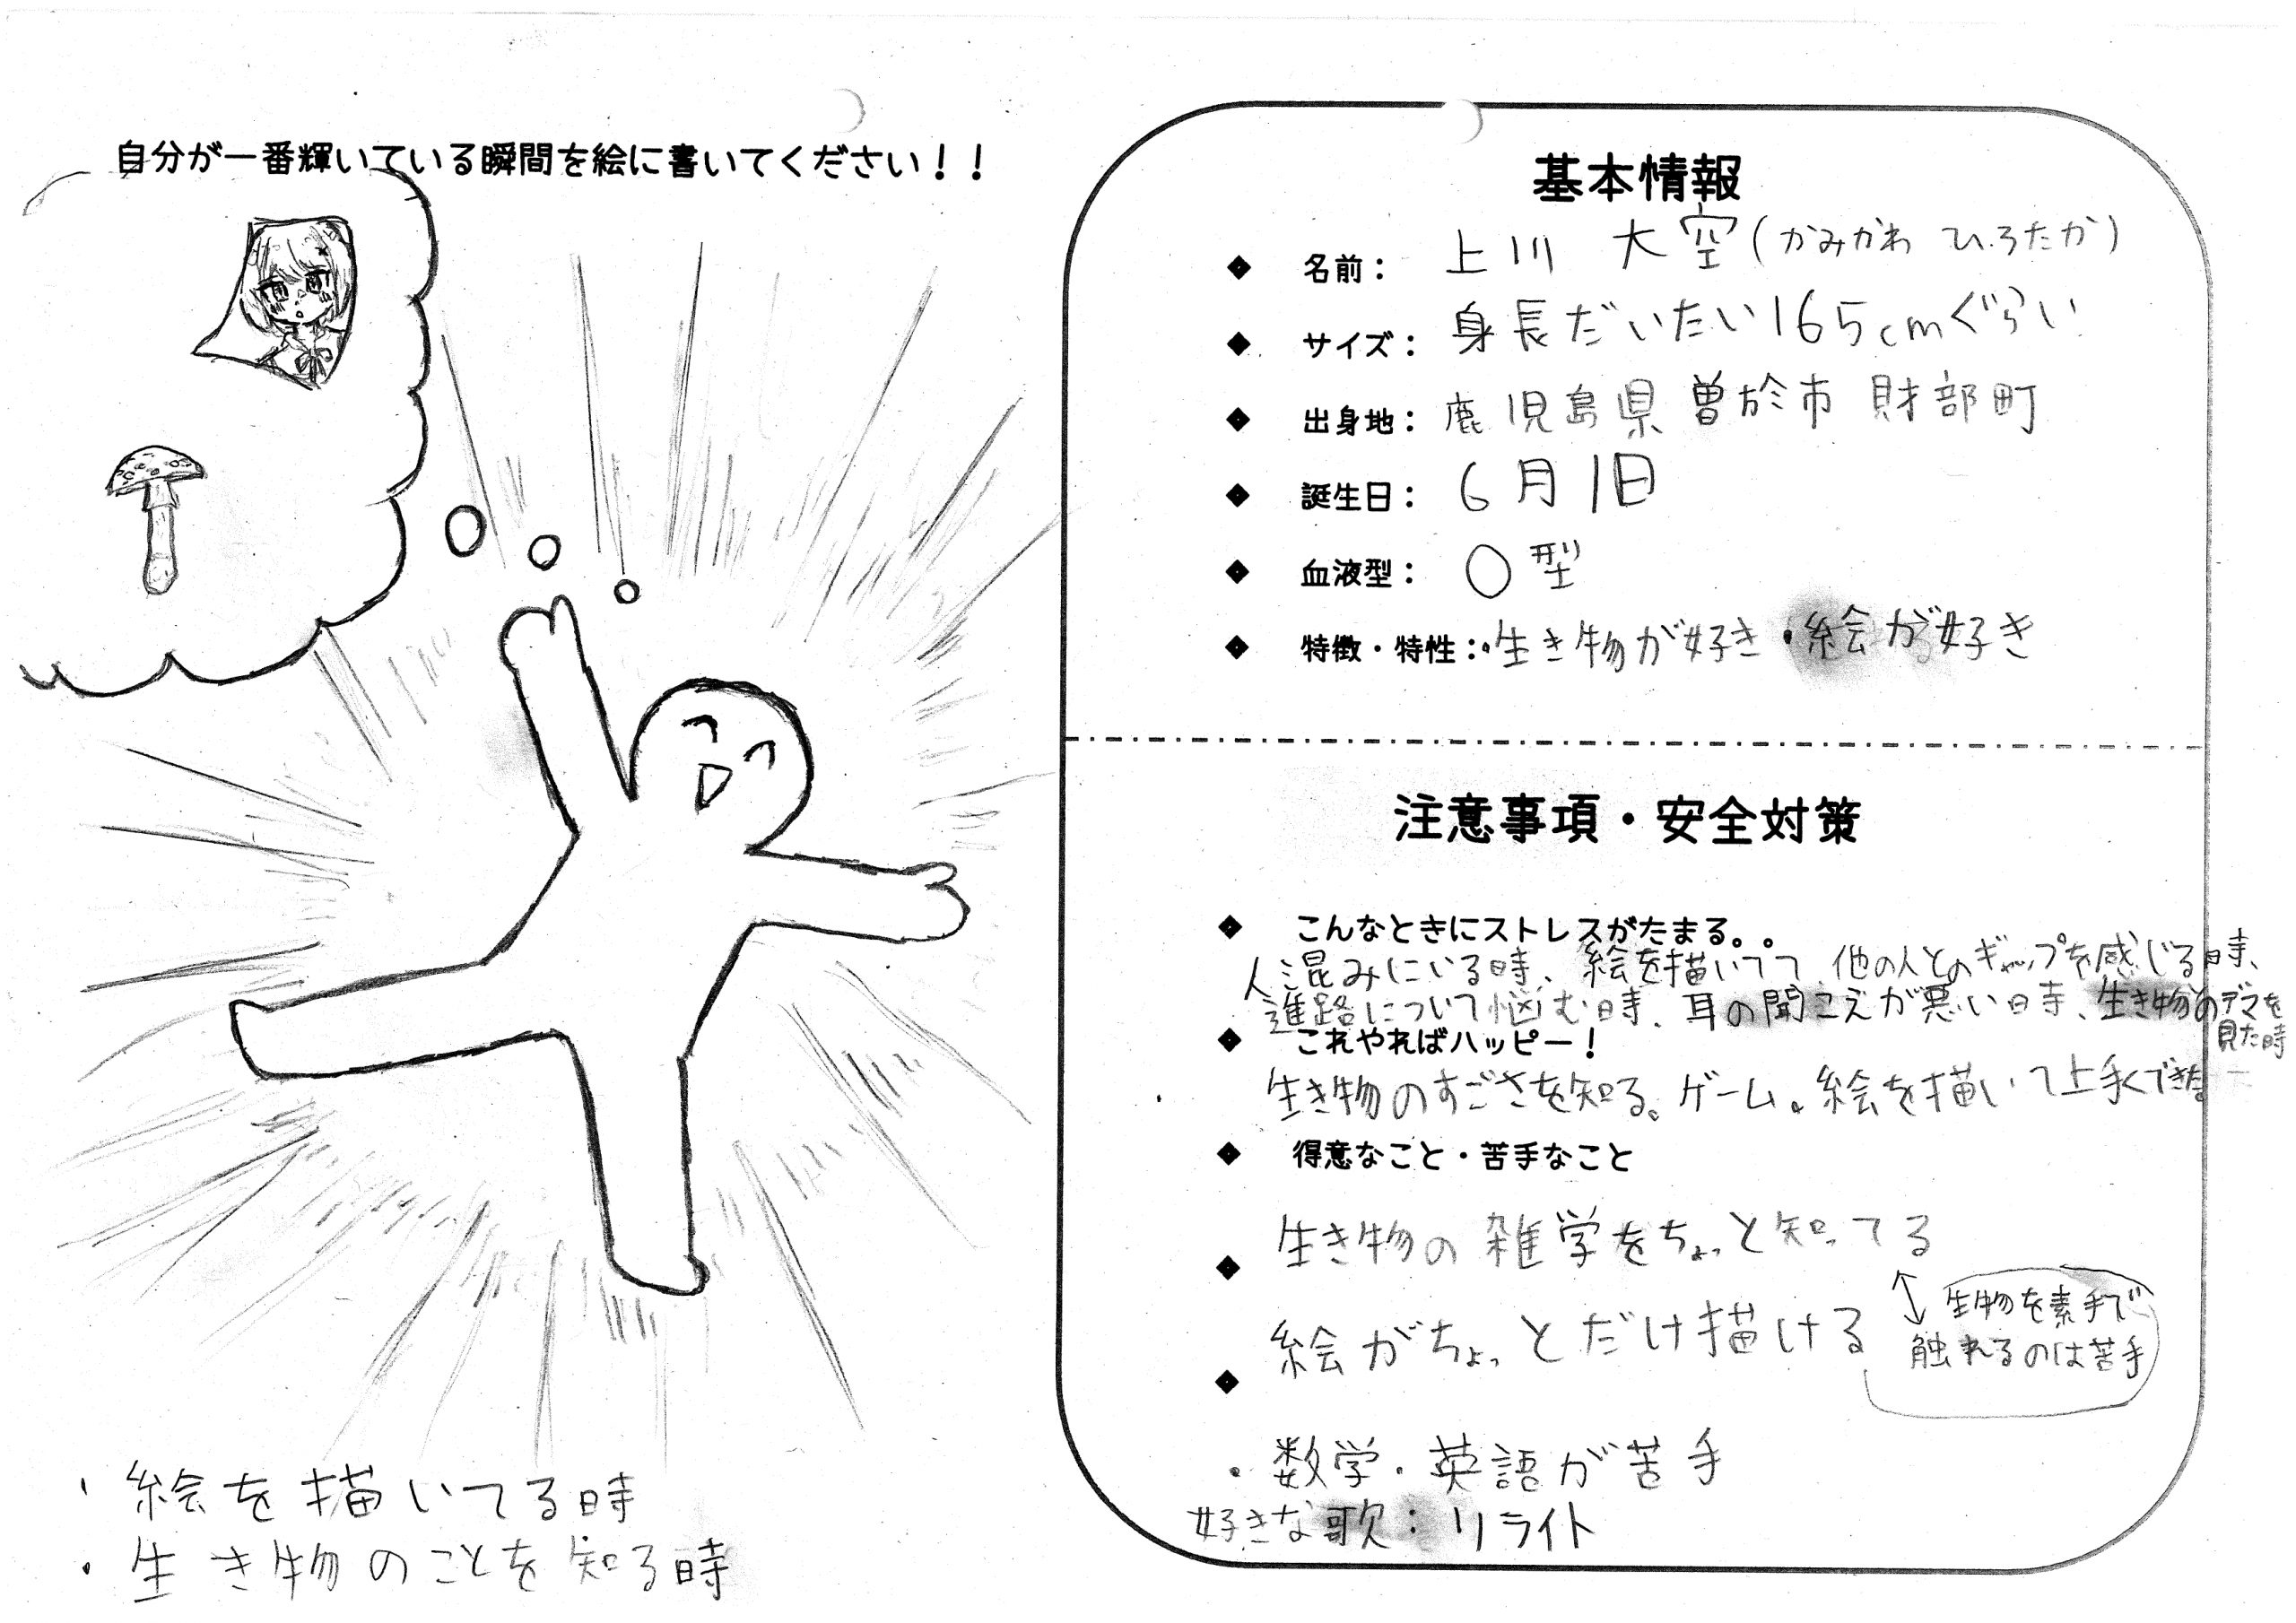 自分が一番輝いている瞬間を絵に書いてください！！
・絵を描いてる時
・生き物のことを知る時
基本情報
◆ 名前： 上川 大空(かみかわ ひろたか)
◆ サイズ： 身長だいたい165cmぐらい
◆ 出身地： 鹿児島県 曽於市 財部町
◆ 誕生日： 6月1日
◆ 血液型： O型
◆ 特徴・特性：・生き物が好き・絵が好き
注意事項・安全対策
◆ こんなときにストレスがたまる。。
人混みにいる時、絵を描いてて、他の人とのギャップを感じる時、
進路について悩む時、耳の聞こえが悪い時、生き物のデマを
見た時
◆ これやればハッピー！
生き物のすごさを知る。ゲーム。絵を描いて上手くできた
◆ 得意なこと・苦手なこと
生き物の雑学をちょっと知ってる
◆
↕ 生物を素手で
触れるのは苦手
絵がちょっとだけ描ける
◆
・数学・英語が苦手
好きな歌：リライト